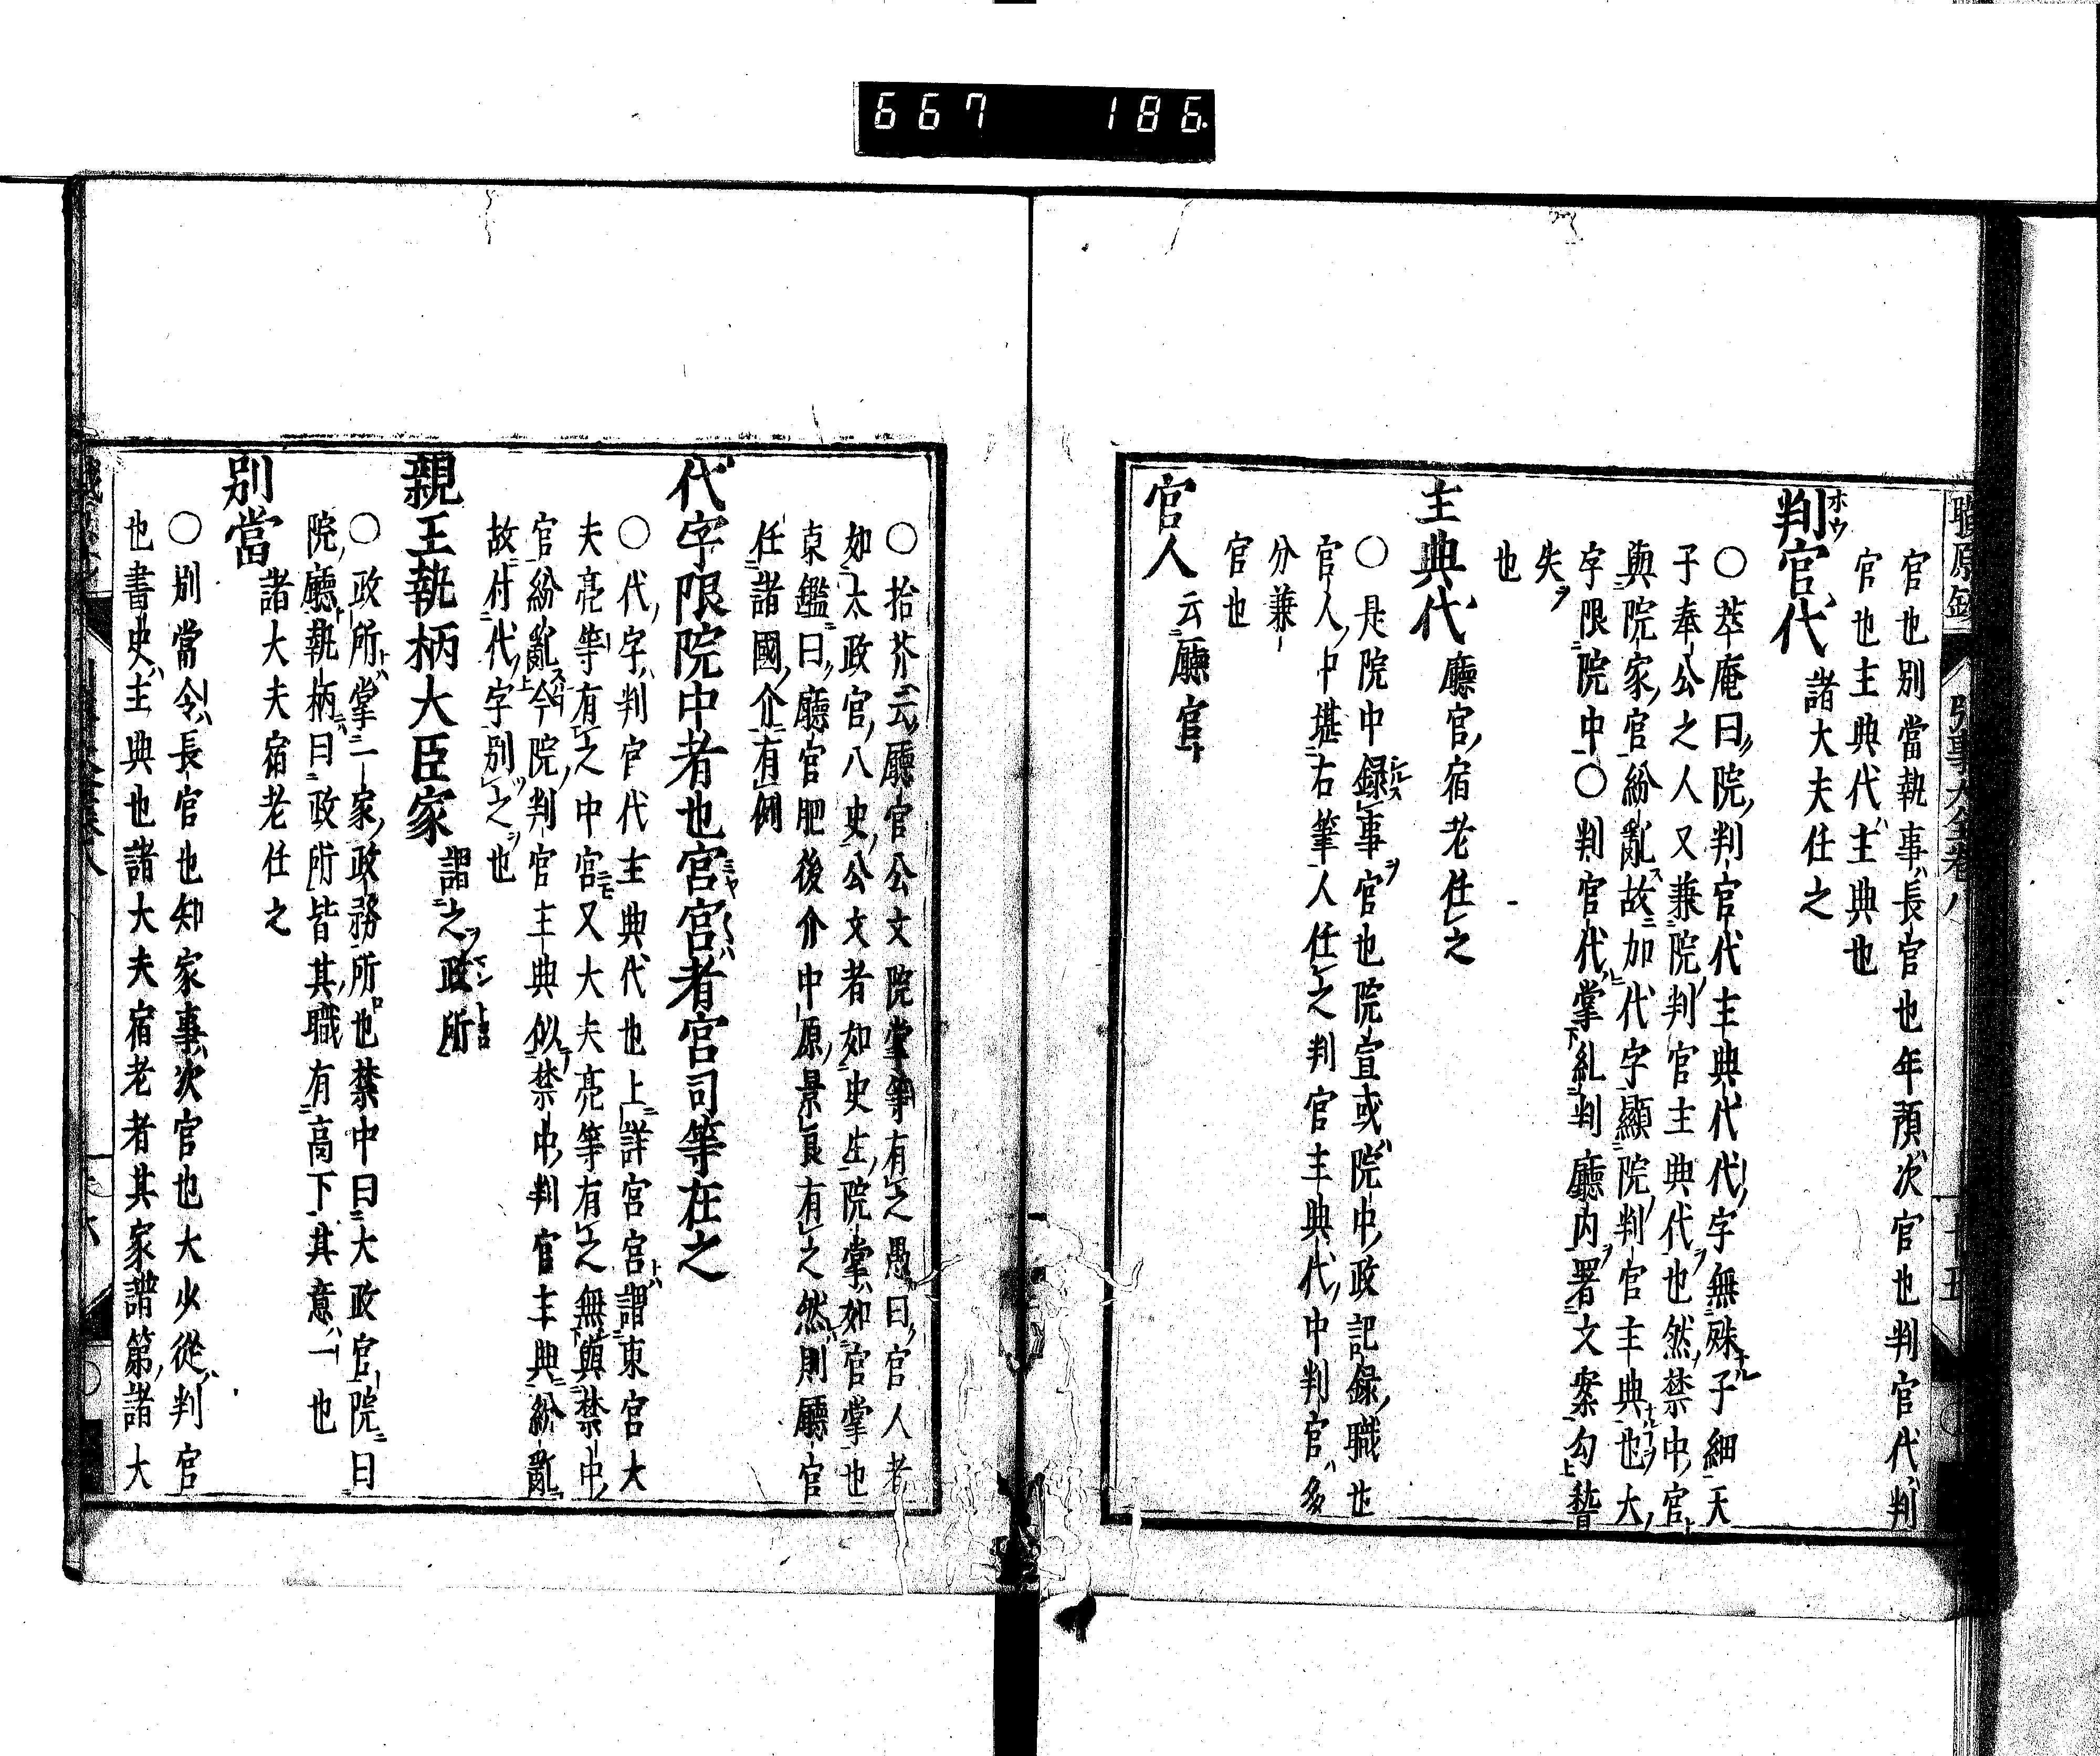 667 186
官也別當執事長官也年預次官也判官代判
官也主典代主典也
判官代 諸大夫任之
○萃庵曰院判官代主典代代字無殊子細天
子奉公之人又兼院判官主典代也然禁中官
與院家官紛亂故加代字顯院判官主典也大
字限院中○判官代掌糺判廳内署文案勾
失
也
主典代 廳官宿老任之
○是院中録事官也院宣或院中政記録職也
官人中堪右筆人任之判官主典代中判官多
分兼
官也
官人 云廳官
○拾芥云廳官公文院掌等有之愚曰官人者
如太政官八史公文者如史生院掌如官掌也
東鑑曰廳官肥後介中原景良有之然則廳官
任諸國介有例
代字限院中者也宮宮者宮司等在之
○代字判官代主典代也上詳宮宮謂東宮大
夫亮等有之中宮又大夫亮等有之無與禁中
官紛亂今院判官主典似禁中判官主典紛亂
故付代字別之也
親王執柄大臣家 謂之政所
○政所掌一家政務所也禁中曰大政官院曰
院廳執柄曰政所皆其職有高下其意一也
別當 諸大夫宿老任之
○別當令長官也知家事次官也大少從判官
也書史主典也諸大夫宿老者其家譜第諸大